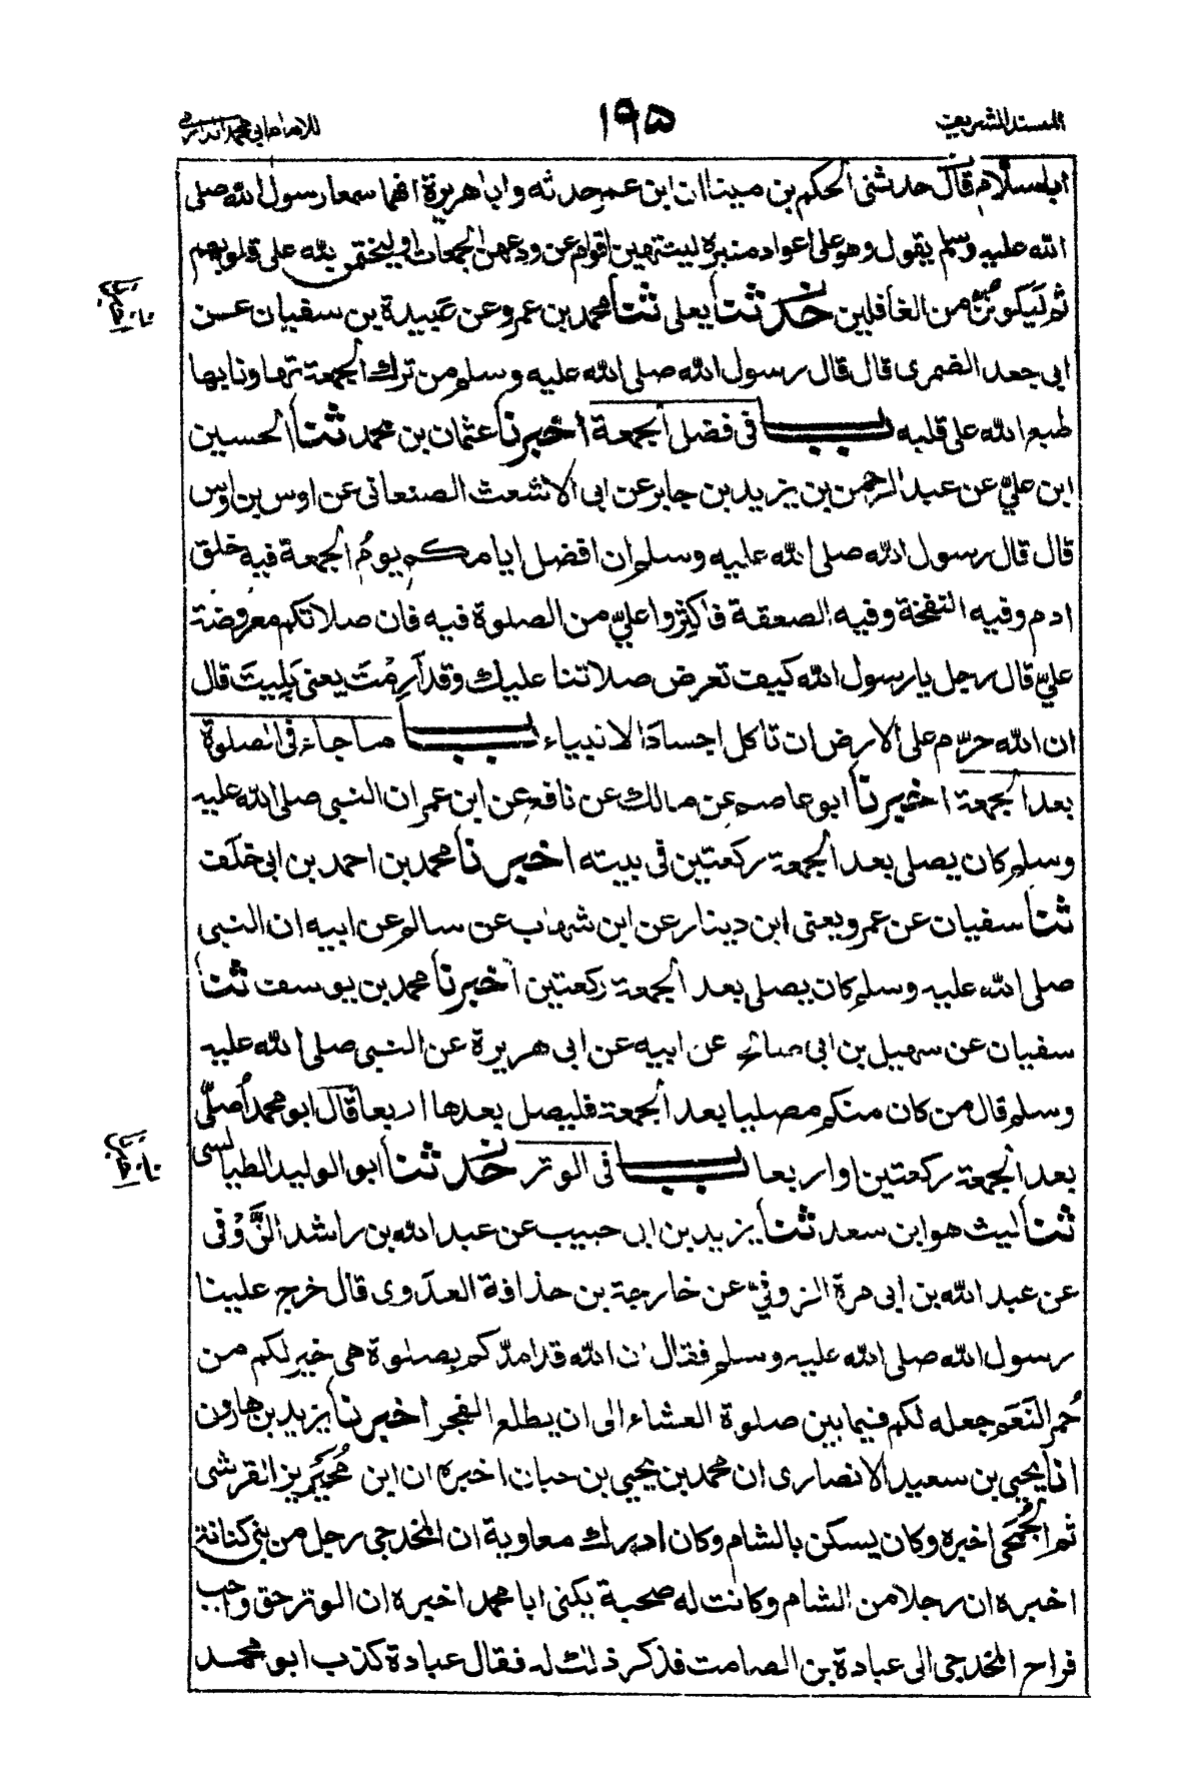 المسند الشريف
١٩٥
للامام ابي محمد الدارمي
اباسلام قال حدثنى الحكم بن مينا ان ابن عمر حدثه وابا هريرة انهما سمعا رسول الله صلى
الله عليه وسلم يقول وهو على اعواد منبره لينتهين اقوام عن ودعهن الجمعات او ليختمن الله على قلوبهم
ثم لَيَكونُنَّ من الغافلين حدثنا يعلى ثنا محمد بن عمرو عن عَبيدة بن سفيان عن
ابى جعد الضمرى قال قال رسول الله صلى الله عليه وسلم من ترك الجمعة تهاونا بها
طبع الله على قلبه باب فى فضل الجمعة اخبرنا عثمان بن محمد ثنا الحسين
ابن عليّ عن عبد الرحمن بن يزيد بن جابر عن ابى الاشعث الصنعانى عن اوس بن اوس
قال قال رسول الله صلى الله عليه وسلم ان افضل ايامكم يومُ الجمعة فيه خلق
ادم وفيه النفخة وفيه الصعقة فاكثِروا عليّ من الصلوة فيه فان صلاتكم معروضة
عليّ قال رجل يا رسول الله كيف تعرض صلاتنا عليك وقد اَرِمْتَ يعنى بَلِيتَ قال
ان الله حرّم على الارض ان تاكل اجسادَ الانبياء باب ما جاء فى الصلوة
بعد الجمعة اخبرنا ابو عاصم عن مالك عن نافع عن ابن عمر ان النبى صلى الله عليه
وسلم كان يصلى بعد الجمعة ركعتين فى بيته اخبرنا محمد بن احمد بن ابى خلَف
ثنا سفيان عن عمرو يعنى ابن دينار عن ابن شهاب عن سالم عن ابيه ان النبى
صلى الله عليه وسلم كان يصلى بعد الجمعة ركعتين اخبرنا محمد بن يوسف ثنا
سفيان عن سهيل بن ابى صالح عن ابيه عن ابى هريرة عن النبى صلى الله عليه
وسلم قال من كان منكم مصليا بعد الجمعة فليصل بعدها اربعا قال ابو محمد اُصلّى
بعد الجمعة ركعتين او اربعا باب فى الوتر حدثنا ابو الوليد الطيالسى
ثنا ليث هو ابن سعد ثنا يزيد بن ابى حبيب عن عبد الله بن راشد الزَّوْفى
عن عبد الله بن ابى مرة الزوفيّ عن خارجة بن حذافة العدَوى قال خرج علينا
رسول الله صلى الله عليه وسلم فقال ان الله قد امدّكم بصلوة هى خير لكم من
حُمر النَعَم جعله لكم فيما بين صلوة العشاء الى ان يطلع الفجر اخبرنا يزيد بن هارون
انا يحيى بن سعيد الانصارى ان محمد بن يحيى بن حبان اخبره ان ابن مُحَيْرِيز القرشى
ثم الجُمَحى اخبره وكان يسكن بالشام وكان ادرك معاوية ان المخدجى رجل من بنى كنانة
اخبره ان رجلا من الشام وكانت له صحبة يكنى ابا محمد اخبره ان الوتر حق واجب
فراح المخدجى الى عبادة بن الصامت فذكر ذلك له فقال عبادة كذب ابو محمد